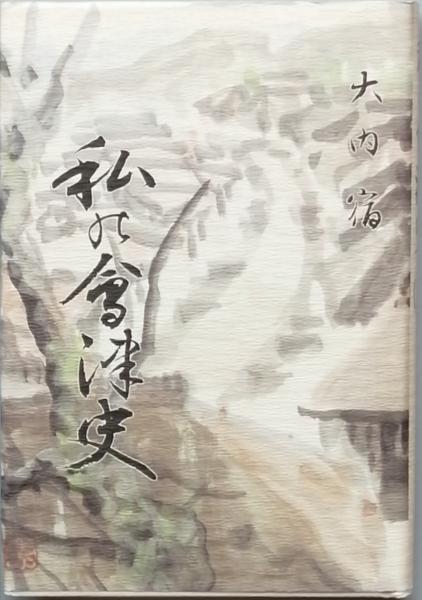 大内宿
私の會津史